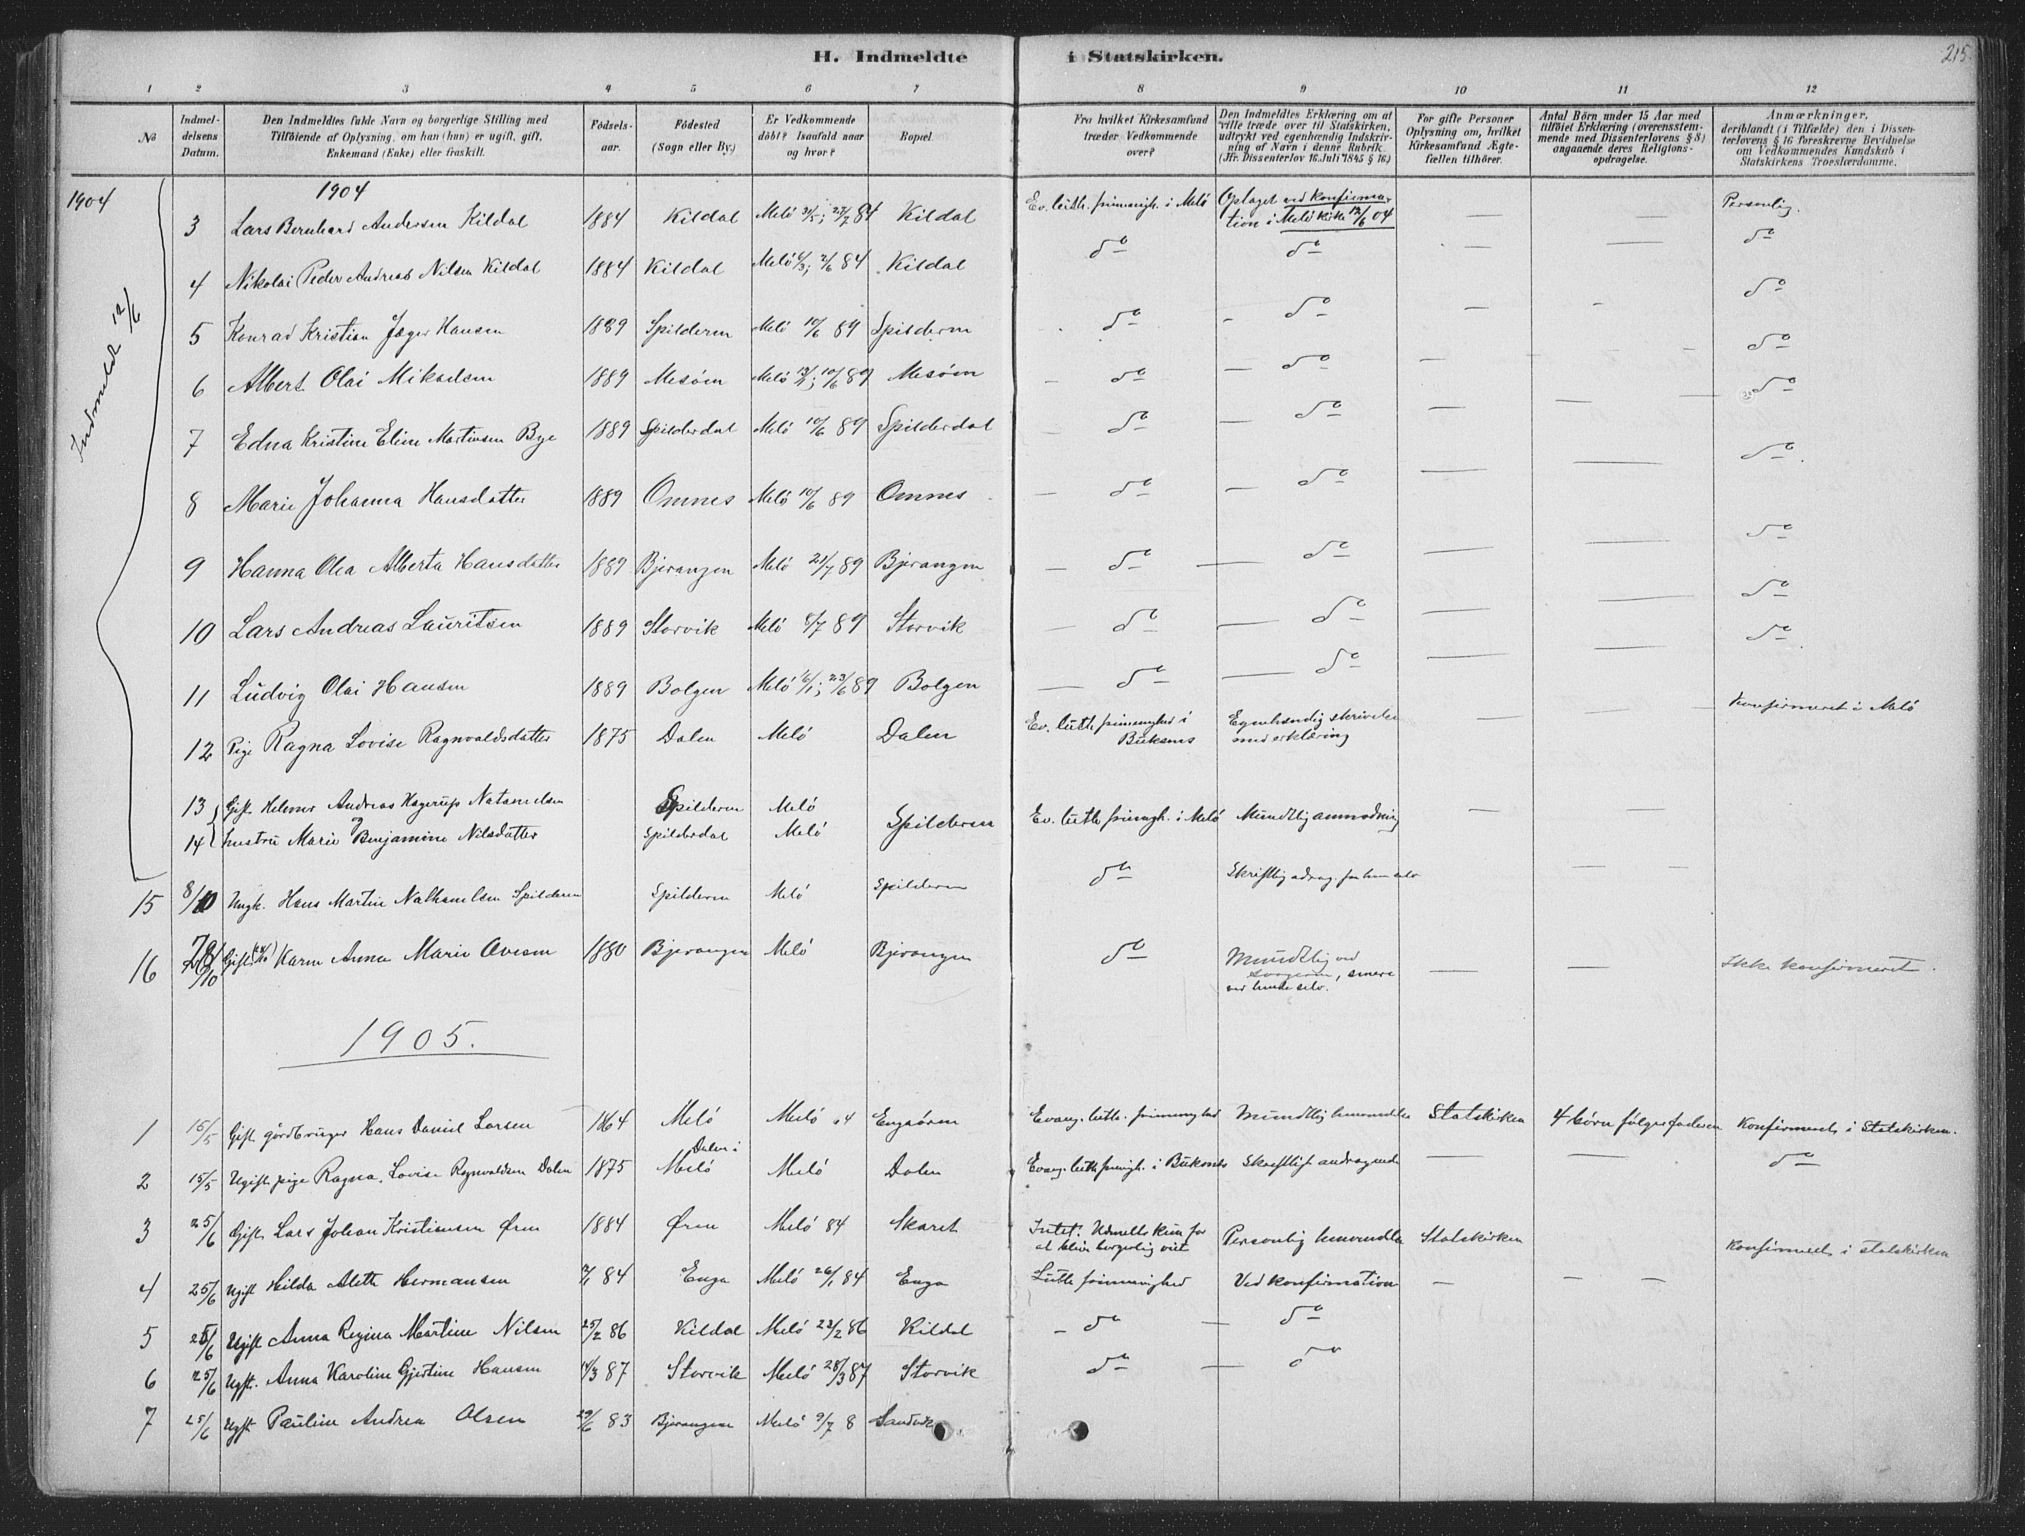 H. Indmeldte i Statskirken.
215.
1 2 3 4 5 6 7 8 9 10 11 12
No
Indmel-
delsens
Datum.
Den Indmeldtes fulde Navn og borgerlige Stilling med
Tilföiende af Oplysning, om han (hun) er ugift, gift,
Enkemand (Enke) eller fraskilt.
Födsels-
aar.
Födested
(Sogn eller By.)
Er Vedkommende
döbt? Isaafald naar
og hvor?
Bopæl.
Fra hvilket Kirkesamfund
træder Vedkommende
over?
Den Indmeldtes Erklæring om at
ville træde over til Statskirken,
udtrykt ved egenhændig Indskriv-
ning af Navn i denne Rubrik.
(Jfr. Dissenterlov 16. Juli 1845 § 16.)
For gifte Personer
Oplysning om, hvilket
Kirkesamfund Ægte-
fællen tilhörer.
Antal Börn under 15 Aar med
tilföiet Erklæring (overensstem-
mende med Dissenterlovens § 8)
angaaende deres Religions-
opdragelse.
Anmærkninger,
deriblandt (i Tilfælde) den i Dissen-
terlovens § 16 foreskrevne Bevidnelse
om Vedkommendes Kundskab i
Statskirkens Troeslærdomme.
1904
1904
Indmeldt 12/6
3 Lars Bernhard Andersen Kildal 1884 Kildal Melö 31/5; 27/7 84 Kildal Ev. luth. frimenigh. i Melö Optaget ved konfirma- — — Personlig.
tion i Melö kirke 12/6 04
4 Nikolai Peder Andreas Nilsen Kildal 1884 Kildal Melö 84 Kildal do do — — do
5 Konrad Kristian Jæger Hansen 1889 Spilderen Melö 10/6 89 Spilderen do — do — — do
6 Albert Olai Mikalsen 1889 Mesöen Melö 10/6 89 Mesöen — do — do — — do
7 Edna Kristine Eline Martinsen Bye 1889 Spilderdal Melö 10/6 89 Spilderdal — do — do — — do
8 Marie Johanna Hansdatter 1889 Omnes Melö 10/6 89 Omnes — do — do — — do
9 Hanna Olea Alberta Hansdatter 1889 Bjerangen Melö 21/7 89 Bjerangen — do — do — — do
10 Lars Andreas Lauritsen 1889 Storvik Melö 8/7 89 Storvik — do — do — — do
11 Ludvig Olai Hansen 1889 Bolgen Melö 6/1; 23/6 89 Bolgen — do — do — — do
12 Pige Ragna Lovise Ragnvaldsdatter 1875 Dalen Melö Dalen Ev. luth. frimenighed i Egenhændig skrivelse — — Konfirmeret i Melö
Buksnes med erklæring
13 Gift Helmer Andreas Hagerup Natanielsen Spilderen Melö
Spilderen Ev. luth frimngh. i Melö Mundtlig anmodning — —
14 hustru Marie Benjamine Nilsdatter Spilderdal Melö
15 8/10 Ungk. Hans Martin Nathanielsen Spilderen Spilderen Melö Spilderen do Skriftlig — —
16 /10 Gift Karen Anna Marie Ovesen 1880 Bjerangen Melö Bjerangen do Mundtlig ved — — Ikke konfirmeret.
, senere
ved hende selv.
1905.
1 15/5 Gift gårdbruger Hans Daniel Larsen 1864 Melö Melö 64 Engaören Evang. luth. frimenighed Mundtlig henvendelse Statskirken 4 börn fölger faderen Konfirmeret i Statskirken.
Dalen i
2 15/5 Ugift pige Ragna Lovise Ragnvaldsen Dalen 1875 Melö Melö Dalen Evang. luth frimngh. i Buksnes Skriftligt andragende — — do
3 25/6 Gift Lars Johan Kristiansen Øren 1884 Øren Melö 84 Skaret Intet. Udmeldt kun for Personlig henvendelse Statskirken Konfirmeret i statskirken
at blive borgerlig viet
4 25/6 Ugift Hilda Aleth Hermansen 7/1 84 Enga Melö 26/1 84 Enga Luth frimenighed Ved konfirmation — — —
5 25/6 Ugift Anna Regina Martine Nilsen 25/2 86 Kildal Melö 23/2 86 Kildal — do — do
6 25/6 Ugift. Anna Karoline Gjertine Hansen 14/3 87 Storvik Melö 28/3 87 Storvik do — do
7 25/6 Ugift Pauline Andrea Olsen 29/6 83 Bjerangen Melö 9/7 8 Sandvik